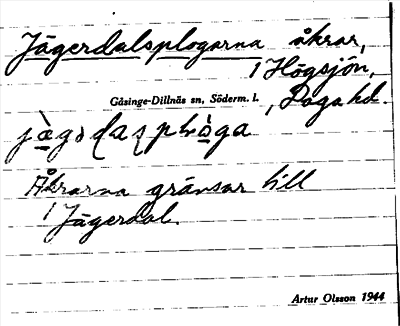 Jägerdalsplogarna åkrar,
1 Högsjön,
Gåsinge-Dillnäs sn, Söderm. l. , Daga hd.
Åkrarna gränsar till
1 Jägerdal.
Artur Olsson 1944